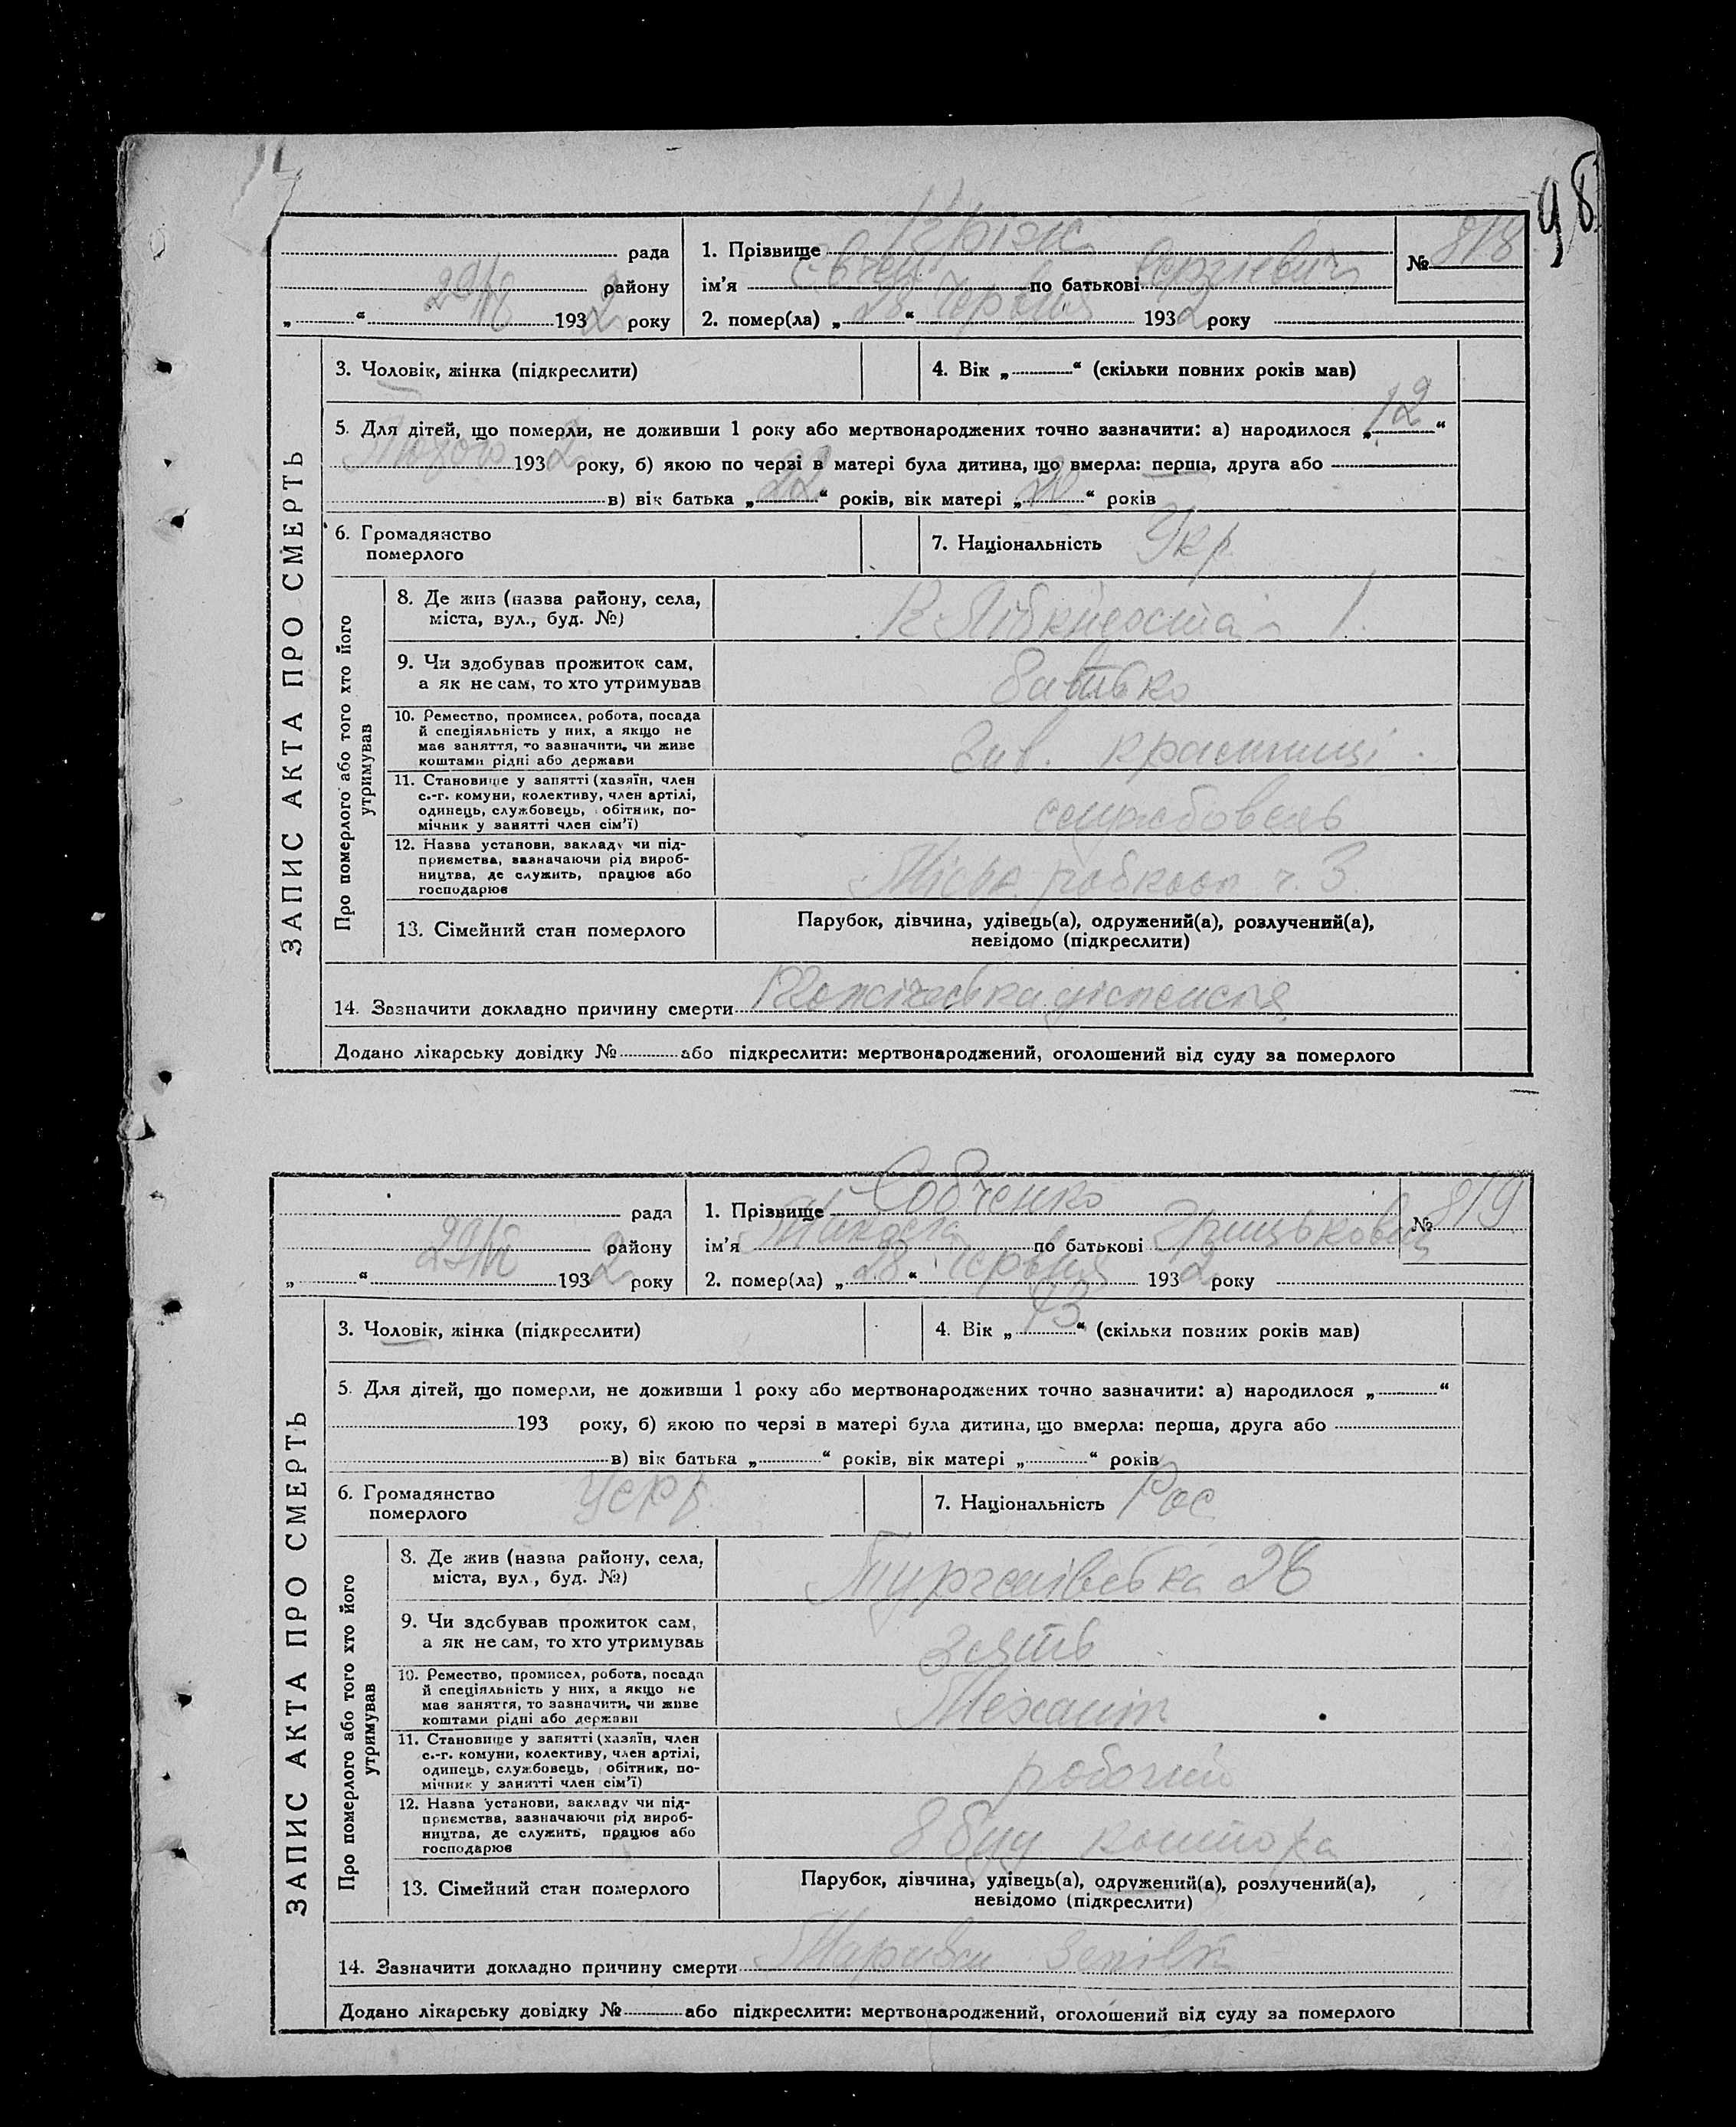 98
рада
району
29/VI 1932 року
1. Прізвище
ім'я Євген по батькові Сергієвич
2. помер(ла) „28“ Червня 1932 року
№ 818
ЗАПИС АКТА ПРО СМЕРТЬ
3. Чоловік, жінка (підкреслити)
4. Вік „ “ (скільки повних років мав)
5. Для дітей, що померли, не доживши 1 року або мертвонароджених точно зазначити: а) народилося „12“
Лютого 1932 року, б) якою по черзі в матері була дитина, що вмерла: перша, друга або
в) вік батька „22“ років, вік матері „20“ років
6. Громадянство
померлого
7. Національність Укр
Про померлого або того хто його
утримував
8. Де жив (назва району, села,
міста, вул., буд. №)
К. Лібкнехта 1
9. Чи здобував прожиток сам,
а як не сам, то хто утримував
батько
10. Ремество, промисел, робота, посада
й спеціяльність у них, а якщо не
має заняття, то зазначити, чи живе
коштами рідні або держави
Зав. крамниці
11. Становище у занятті (хазяїн, член
с.-г. комуни, колективу, член артілі,
одинець, службовець, обітник, по-
мічник у занятті член сім'ї)
службовець
12. Назва установи, закладу чи під-
приємства, зазначаючи рід вироб-
ництва, де служить, працює або
господарює
робкооп ч. 3
13. Сімейний стан померлого
Парубок, дівчина, удівець(а), одружений(а), розлучений(а),
невідомо (підкреслити)
14. Зазначити докладно причину смерти Токсічеська діспепсія
Додано лікарську довідку № або підкреслити: мертвонароджений, оголошений від суду за померлого
рада
району
29/VI 1932 року
1. Прізвище Собченко
ім'я Микола по батькові Грицькович
2. помер(ла) „28“ Червня 1932 року
№ 819
ЗАПИС АКТА ПРО СМЕРТЬ
3. Чоловік, жінка (підкреслити)
4. Вік „73“ (скільки повних років мав)
5. Для дітей, що померли, не доживши 1 року або мертвонароджених точно зазначити: а) народилося „ “
193 року, б) якою по черзі в матері була дитина, що вмерла: перша, друга або
в) вік батька „ “ років, вік матері „ “ років
6. Громадянство
померлого
УСРР
7. Національність Рос
Про померлого або того хто його
утримував
8. Де жив (назва району, села,
міста, вул., буд. №)
Тургенівська 26
9. Чи здобував прожиток сам,
а як не сам, то хто утримував
зять
10. Ремество, промисел, робота, посада
й спеціяльність у них, а якщо не
має заняття, то зазначити, чи живе
коштами рідні або держави
Механік
11. Становище у занятті (хазяїн, член
с.-г. комуни, колективу, член артілі,
одинець, службовець, обітник, по-
мічник у занятті член сім'ї)
робочий
12. Назва установи, закладу чи під-
приємства, зазначаючи рід вироб-
ництва, де служить, працює або
господарює
8 буд контора
13. Сімейний стан померлого
Парубок, дівчина, удівець(а), одружений(а), розлучений(а),
невідомо (підкреслити)
14. Зазначити докладно причину смерти
Додано лікарську довідку № або підкреслити: мертвонароджений, оголошений від суду за померлого